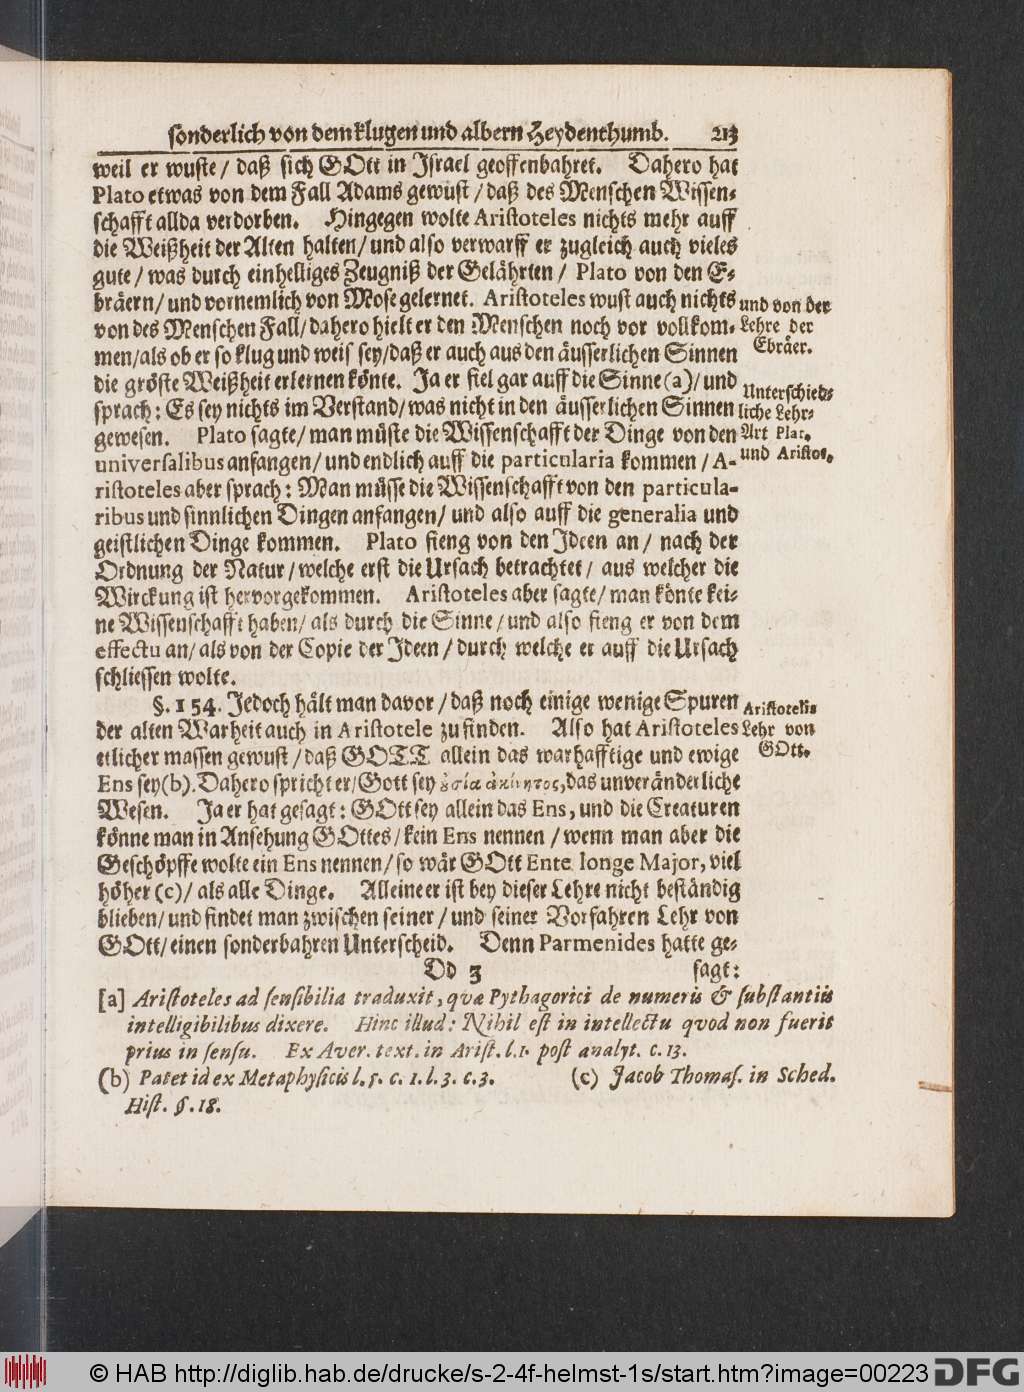 sonderlich von dem klugen und albern Heydenthumb. 213
weil er wuste / daß sich GOtt in Israel geoffenbahret. Dahero hat
Plato etwas von dem Fall Adams gewust / daß des Menschen Wissen-
schafft allda verdorben. Hingegen wolte Aristoteles nichts mehr auff
die Weißheit der Alten halten / und also verwarff er zugleich auch vieles
gute / was durch einhelliges Zeugniß der Gelährten / Plato von den E-
bräern / und vornemlich von Mose gelernet. Aristoteles wust auch nichts
und von der
von des Menschen Fall / dahero hielt er den Menschen noch vor vollkom-
Lehre der
men / als ob er so klug und weis sey / daß er auch aus den äusserlichen Sinnen
Ebräer.
die gröste Weißheit erlernen könte. Ja er fiel gar auff die Sinne (a) / und
Unterschied-
sprach: Es sey nichts im Verstand / was nicht in den äusserlichen Sinnen
liche Lehr-
gewesen. Plato sagte / man müste die Wissenschafft der Dinge von den
Art Plat.
universalibus anfangen / und endlich auff die particularia kommen / A-
und Aristot.
ristoteles aber sprach: Man müsse die Wissenschafft von den particula-
ribus und sinnlichen Dingen anfangen / und also auff die generalia und
geistlichen Dinge kommen. Plato fieng von den Ideen an / nach der
Ordnung der Natur / welche erst die Ursach betrachtet / aus welcher die
Wirckung ist hervorgekommen. Aristoteles aber sagte / man könte kei-
ne Wissenschafft haben / als durch die Sinne / und also fieng er von dem
effectu an / als von der Copie der Ideen / durch welche er auff die Ursach
schliessen wolte.
§. 154. Jedoch hält man davor / daß noch einige wenige Spuren
Aristotelis
der alten Warheit auch in Aristotele zu finden. Also hat Aristoteles
Lehr von
etlicher massen gewust / daß GOTT allein das warhafftige und ewige
GOtt.
Ens sey (b). Dahero spricht er / Gott sey ȣσία ἀκίνητος, das unveränderliche
Wesen. Ja er hat gesagt: GOtt sey allein das Ens, und die Creaturen
könne man in Ansehung GOttes / kein Ens nennen / wenn man aber die
Geschöpffe wolte ein Ens nennen / so wär GOtt Ente longe Major, viel
höher (c) / als alle Dinge. Alleine er ist bey dieser Lehre nicht beständig
blieben / und findet man zwischen seiner / und seiner Vorfahren Lehr von
GOtt / einen sonderbahren Unterscheid. Denn Parmenides hatte ge-
Dd 3 sagt:
[a] Aristoteles ad sensibilia traduxit, qvæ Pythagorici de numeris & substantiis
intelligibilibus dixere. Hinc illud: Nihil est in intellectu qvod non fuerit
prius in sensu. Ex Aver. text. in Arist. l. 1. post analyt. c. 13.
(b) Patet id ex Metaphysicis l. 5. c. 1. l. 3. c. 3. (c) Jacob Thomas. in Sched.
Hist. §. 18.
© HAB http://diglib.hab.de/drucke/s-2-4f-helmst-1s/start.htm?image=00223 DFG